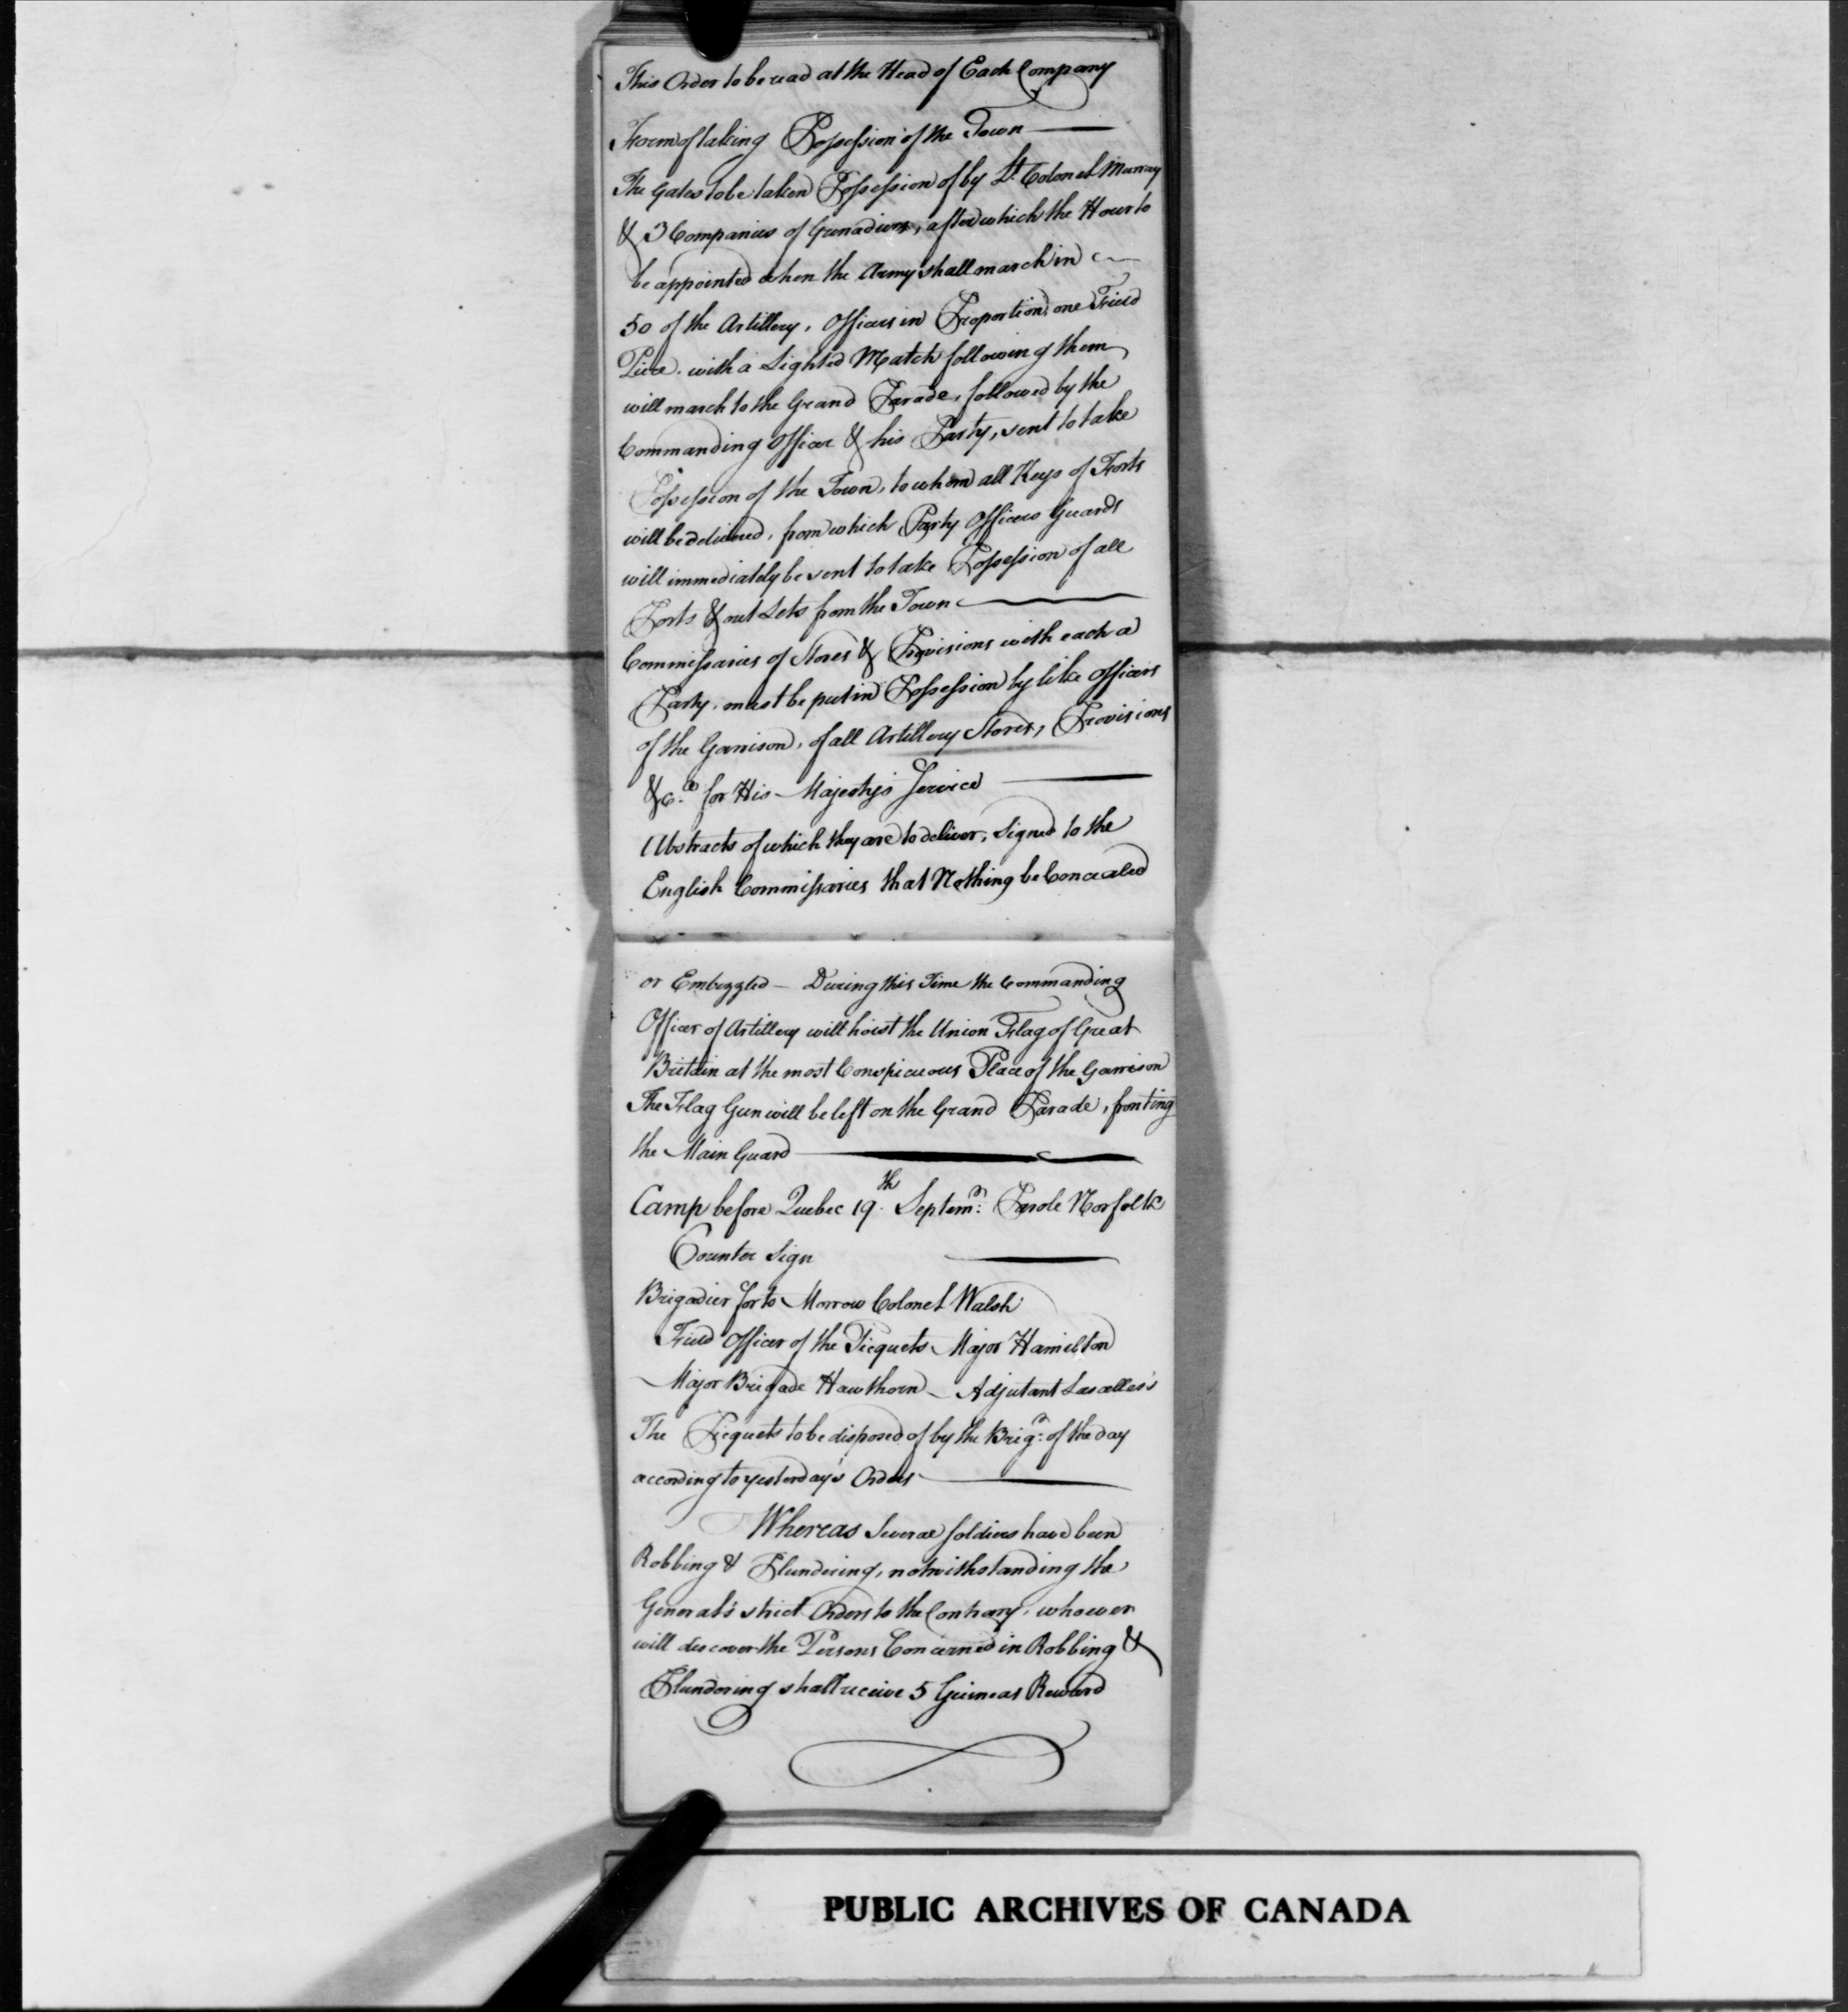 This Order to be read at the Head of Each Company
Form of taking Possession of the Town
The Gates to be taken Possession of by Lt. Colonel Murray
& 3 Companies of Grenadiers, after which the Hour to
be appointed when the Army shall march in
50 of the Artillery, Officers in Proportion, one Field
Piece, with a Lighted Match following them
will march to the Grand Parade, followed by the
Commanding Officer & his Party, sent to take
Possession of the Town, to whom all Keys of Forts
will be delivered, from which Party Officers Guards
will immediately be sent to take Possession of all
Ports & out Lets from the Town
Commissaries of Stores & Provisions with each a
Party, must be put in Possession by like Officers
of the Garrison, of all Artillery Stores, Provisions
&c.a for His Majesty's Service
Abstracts of which they are to deliver, Signed to the
English Commissaries that Nothing be Concealed
or Embezzled — During this Time the Commanding
Officer of Artillery will hoist the Union Flag of Great
Britain at the most Conspicuous Place of the Garrison
The Flag Gun will be left on the Grand Parade, fronting
the Main Guard
Camp before Quebec 19th Septemr: Parole Norfolk
Counter Sign
Brigadier for to Morrow Colonel Walsh
Field Officer of the Picquets Major Hamilton
Major Brigade Hawthorn — Adjutant Lascelles's
The Picquets to be disposed of by the Brigr: of the day
according to yesterday's Orders
Whereas Several Soldiers have been
Robbing & Plundering, notwithstanding the
General's strict Orders to the Contrary, whoever
will discover the Persons Concerned in Robbing &
Plundering shall receive 5 Guineas Reward
PUBLIC ARCHIVES OF CANADA